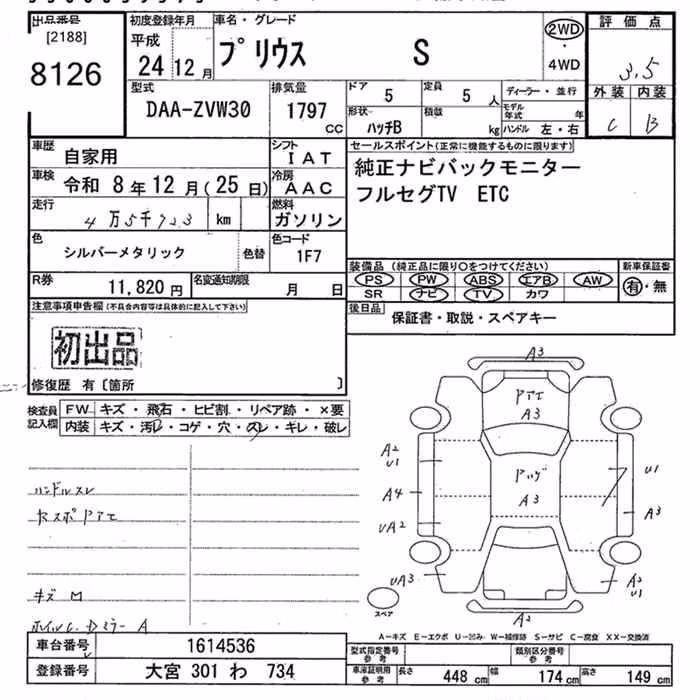 出品番号
[2188]
8126
初度登録年月
平成
24 12 月
車名・グレード
プリウス S
2WD
・
4WD
評価点
3.5
外装 内装
C B
型式
DAA-ZVW30
排気量
1797
CC
ドア
5
定員
5 人
ディーラー・並行
形状
ハッチB
積載
kg
モデル年式 年
ハンドル 左・右
車歴
自家用
シフト
IAT
車検
令和 8 年 12 月(25 日)
冷房
AAC
走行
4万5千723 km
燃料
ガソリン
色
シルバーメタリック
色替
色コード
1F7
R券
11,820 円
名変通知期限
月 日
セールスポイント(正常に機能するものに限ります)
純正ナビバックモニター
フルセグTV ETC
装備品(純正品に限り〇をつけてください)
PS PW ABS エアB AW
SR ナビ TV カワ
新車保証書
有・無
後日品
保証書・取説・スペアキー
注意事項申告欄(不具合内容等は具体的に記入して下さい)
初出品
修復歴 有〔箇所 〕
検査員
記入欄
FW キズ・飛石・ヒビ割・リペア跡・×要
内装 キズ・汚レ・コゲ・穴・スレ・ギレ・破レ
ハンドルスレ
キズ M
A3
A3
A3
A2
U1
A4
UA2
UA3
U1
A3
A3
U1
A2
スペア
A-キズ E-エクボ U-凹み W-補修跡 S-サビ C-腐食 XX-交換済
車台番号
1614536
登録番号
大宮 301 わ 734
型式指定番号
参考
類別区分番号
参考
車庫証明用
参考
長さ 448 cm 幅 174 cm 高さ 149 cm